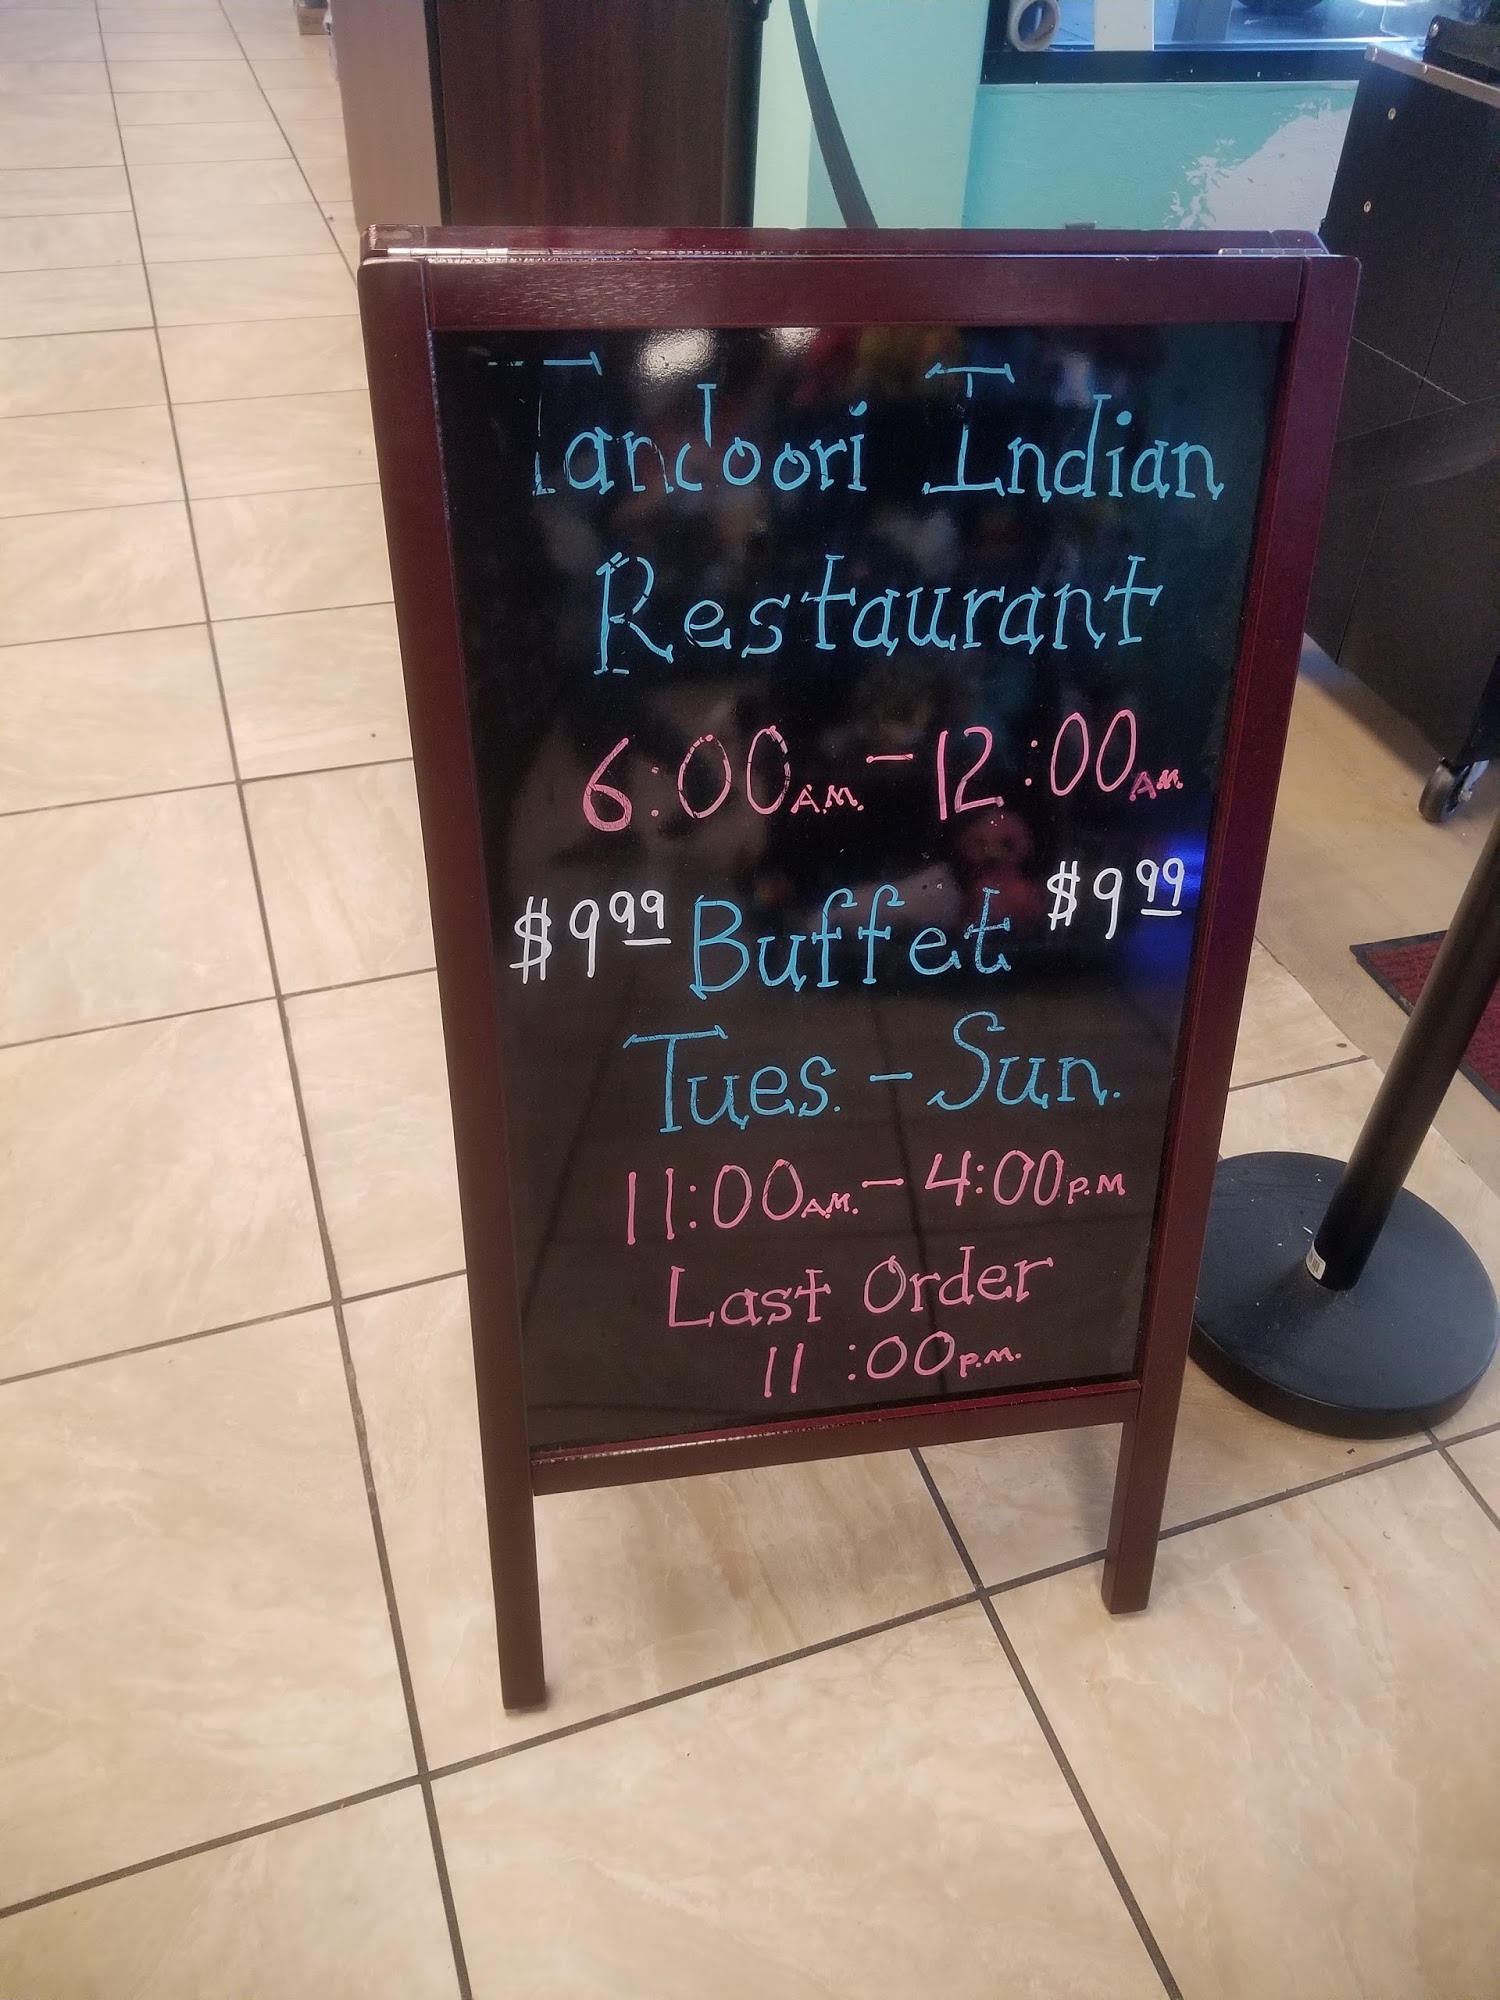 Tandoori Indian
Restaurant
6:00 A.M. - 12:00 A.M.
$9.99 Buffet $9.99
Tues. - Sun.
11:00 A.M. - 4:00 P.M
Last Order
11:00 P.M.